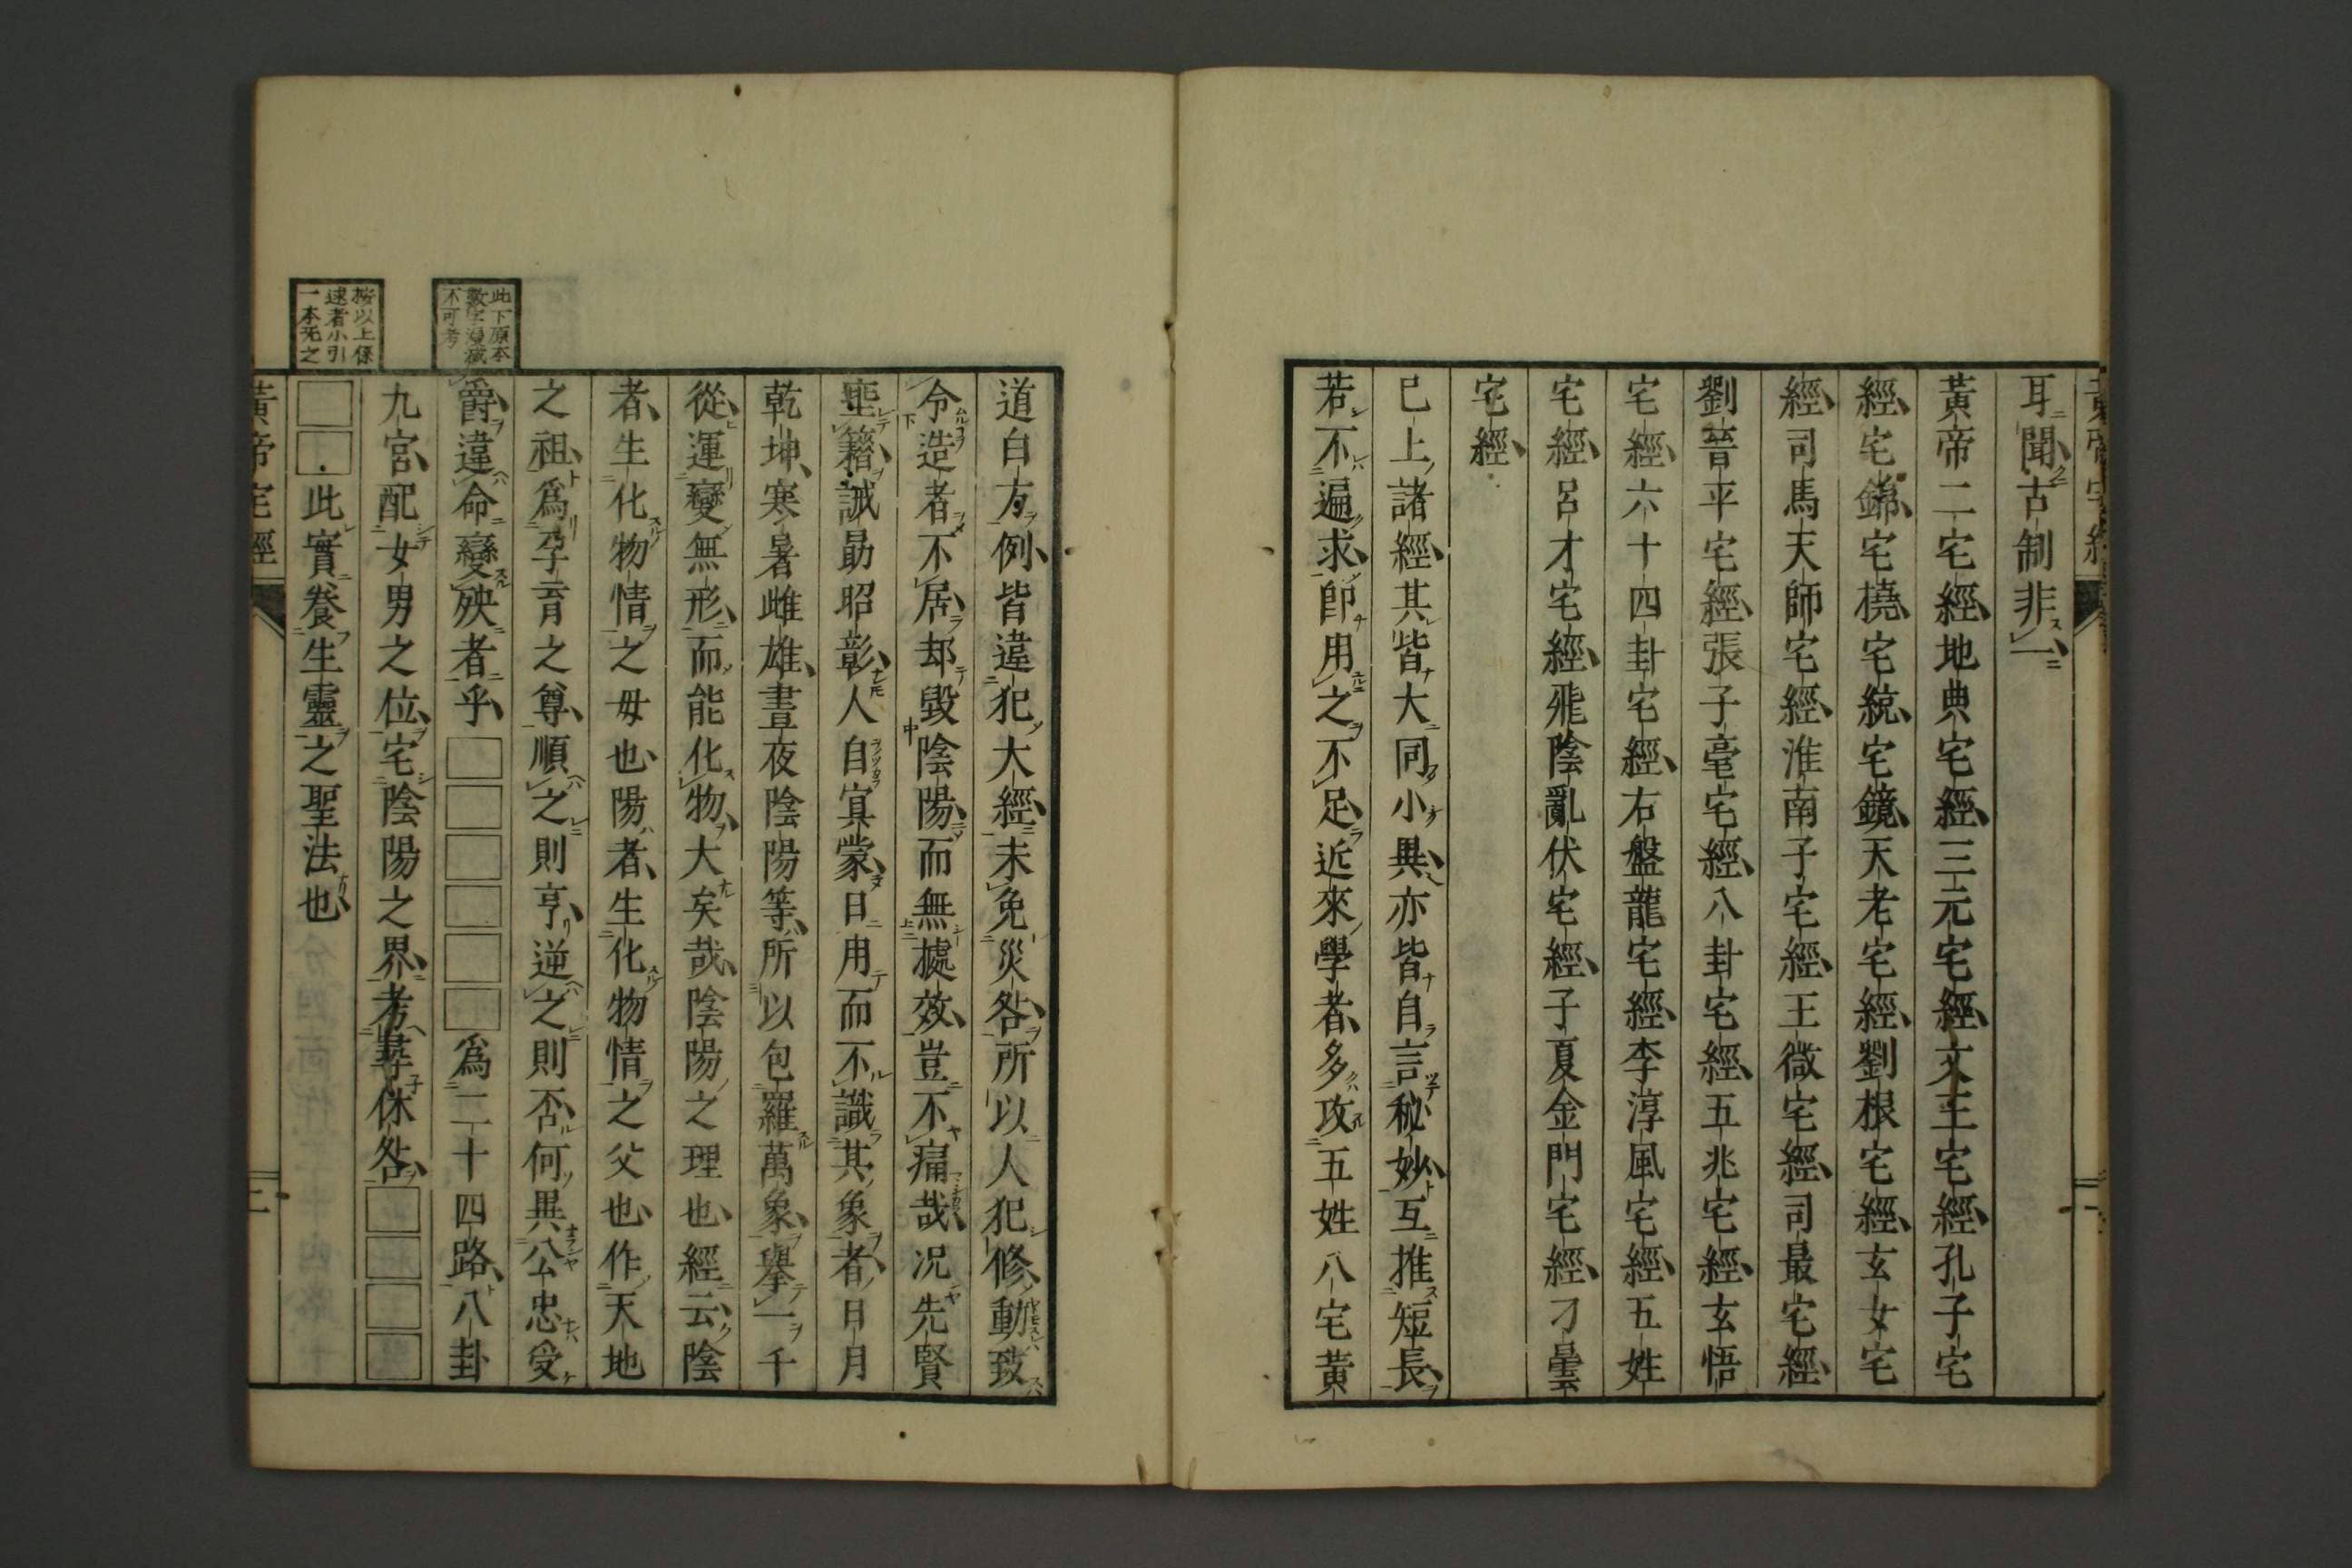 黃帝宅經
耳聞古制非一
黃帝二宅經地典宅經三元宅經文王宅經孔子宅
經宅錦宅橈宅統宅鏡天老宅經劉根宅經玄女宅
經司馬天師宅經淮南子宅經王微宅經司最宅經
劉晉平宅經張子毫宅經八卦宅經五兆宅經玄悟
宅經六十四卦宅經右盤龍宅經李淳風宅經五姓
宅經呂才宅經飛陰亂伏宅經子夏金門宅經刁曇
宅經
已上諸經其皆大同小異亦皆自言秘妙互推短長
若不遍求卽用之不足近來學者多攻五姓八宅黃
道白方例皆違犯大經未免災咎所以人犯修動致
令造者不居却毀陰陽而無據效豈不痛哉况先賢
聖籍誡勗昭彰人自寘蒙日用而不識其象者日月
乾坤寒暑雌雄晝夜陰陽等所以包羅萬象擧一千
從運變無形而能化物大矣哉陰陽之理也經云陰
者生化物情之毋也陽者生化物情之父也作天地
之祖爲孕育之尊順之則亨逆之則否何異公忠受
此下原本
數字漫滅
不可考
爵違命變殃者乎□□□□□□爲二十四路八卦
九宮配女男之位宅陰陽之界考尋休咎□□□□
按以上係
逑者小引
一本旡之
□□此實養生靈之聖法也
黃帝宅經
二